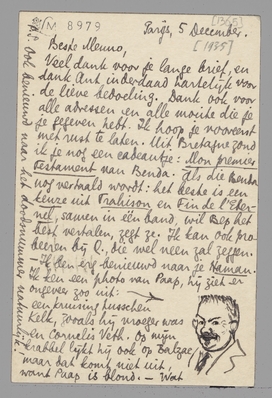 M 8979
[1365]
Parijs, 5 December.
[1935]
Beste Menno,
Veel dank voor je lange brief, en
dank Ant inderdaad hartelijk voor
de lieve bedoeling. Dank ook voor
alle adressen en alle moeite die je
je gegeven hebt. Ik hoop je vooreerst
met rust te laten. Uit Bretagne zond
ik je nog een cadeautje: Mon premier
Testament van Benda. Als die Benda
nog vertaald wordt: het beste is een
keuze uit Trahison en Fin de l'Eter-
nel, samen in één band, wil Bep het
best vertalen, zegt ze. Ik kan ook pro-
beeren bij Q., die wel neen zal zeggen.
— Ik ben erg benieuwd naar je Naman.
Ik zen een photo van Paap, hij ziet er
ongeveer zoo uit:
een kruising tusschen
Kelk, zooals hij vroeger was
en Cornelis Veth. Op mijn
krabbel lijkt hij ook op Balzac,
maar dat komt niet uit,
want Paap is blond. — Wat
ook benieuwd naar het doodsnummer natuurlijk!